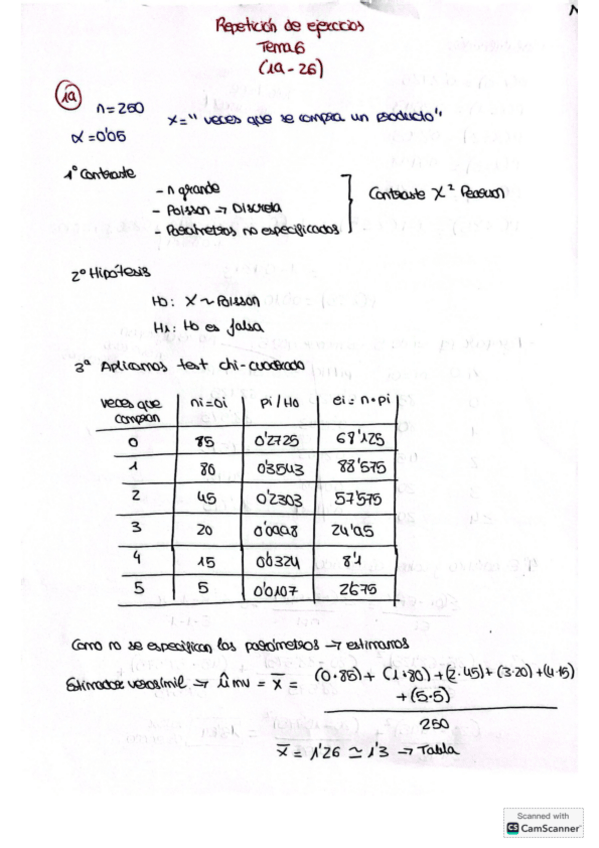 Repetición de ejercicios
Tema 6
(1a - 26)
1a
n=250
X = " veces que se compra un producto"
α = 0'05
1º Contraste
- n grande
- Poisson → Discreta
- Parámetros no especificados
Contraste X² Pearson
2º Hipótesis
H0: X ~ Poisson
H1: H0 es falsa
3º Aplicamos test chi-cuadrado
veces que compran | ni=oi | pi/H0 | ei = n·pi
0 | 85 | 0'2725 | 68'125
1 | 80 | 0'3543 | 88'575
2 | 45 | 0'2303 | 57'575
3 | 20 | 0'0998 | 24'95
4 | 15 | 0'0324 | 8'1
5 | 5 | 0'0107 | 2'675
Como no se especifican los parámetros → estimamos
Estimador verosímil → û mv = x̄ = (0·85) + (1·80) + (2·45) + (3·20) + (4·15)
+ (5·5)
250
x̄ = 1'26 ≃ 1'3 → Tabla
Scanned with
CS CamScanner